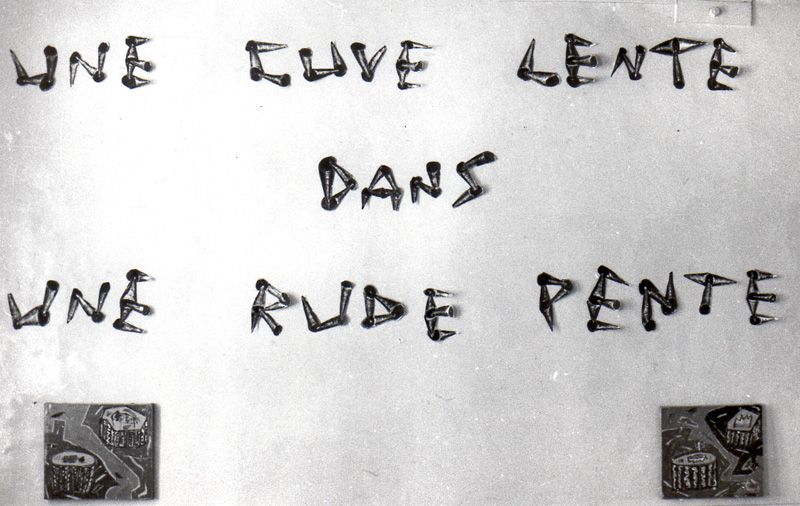 UNE CUVE LENTE
DANS
UNE RUDE PENTE